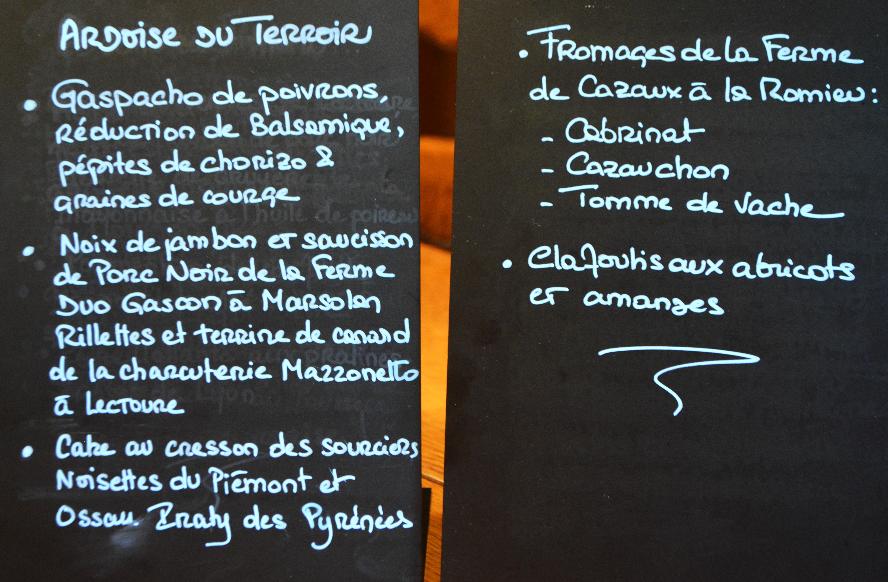 Ardoise du Terroir
• Gaspacho de poivrons,
Réduction de Balsamique,
pépites de chorizo &
graines de courge
• Noix de jambon et saucisson
de Porc Noir de la Ferme
Duo Gascon à Marsolan
Rillettes et terrine de canard
de la charcuterie Mazzonetto
à Lectoure
• Cake au cresson des sourciers
Noisettes du Piémont et
Ossau Iraty des Pyrénées
• Fromages de la Ferme
de Cazaux à la Romieu :
- Cabrinat
- Cazauchon
- Tomme de vache
• Clafoutis aux abricots
et amandes